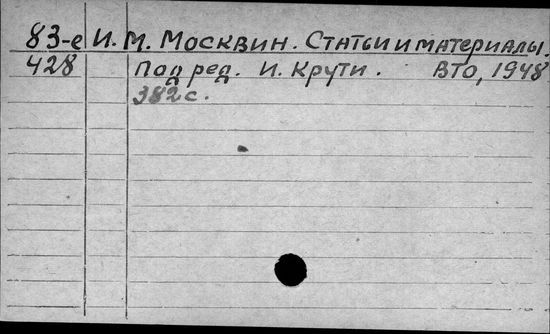 83-е И. М. Москвин. Статьи и материалы.
428 Под ред. И. Крути. ВТО, 1948
382 с.